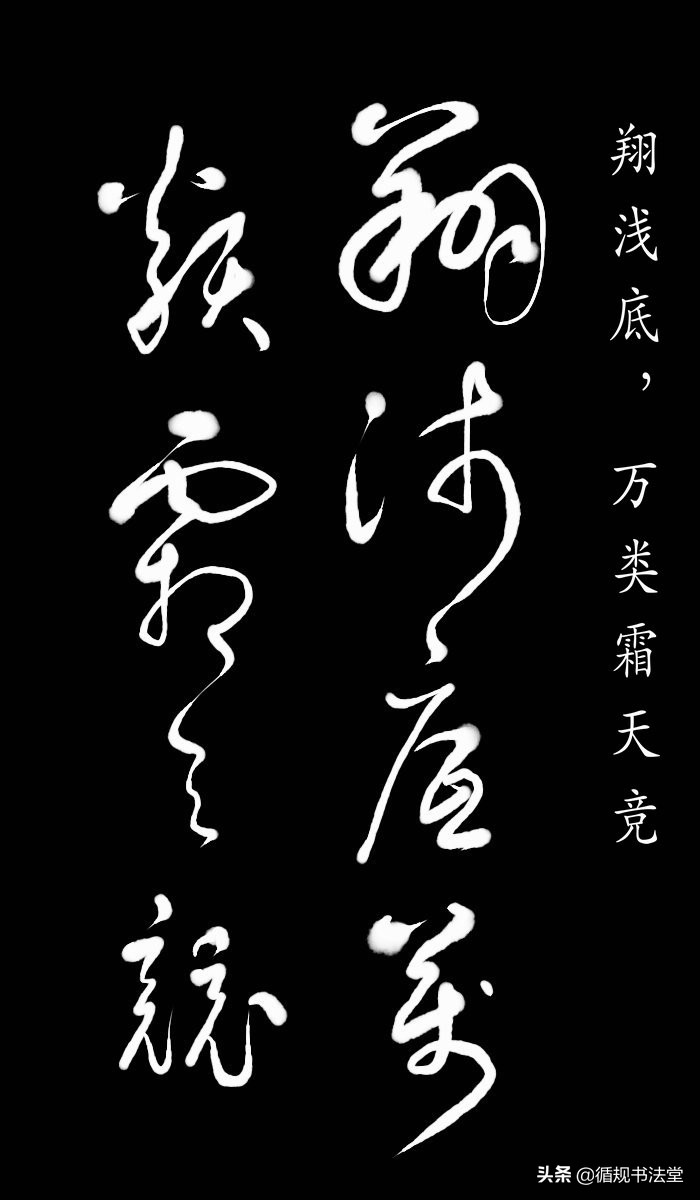 翔浅底，万类霜天竞
翔浅底萬
類霜天競
头条 @循规书法堂